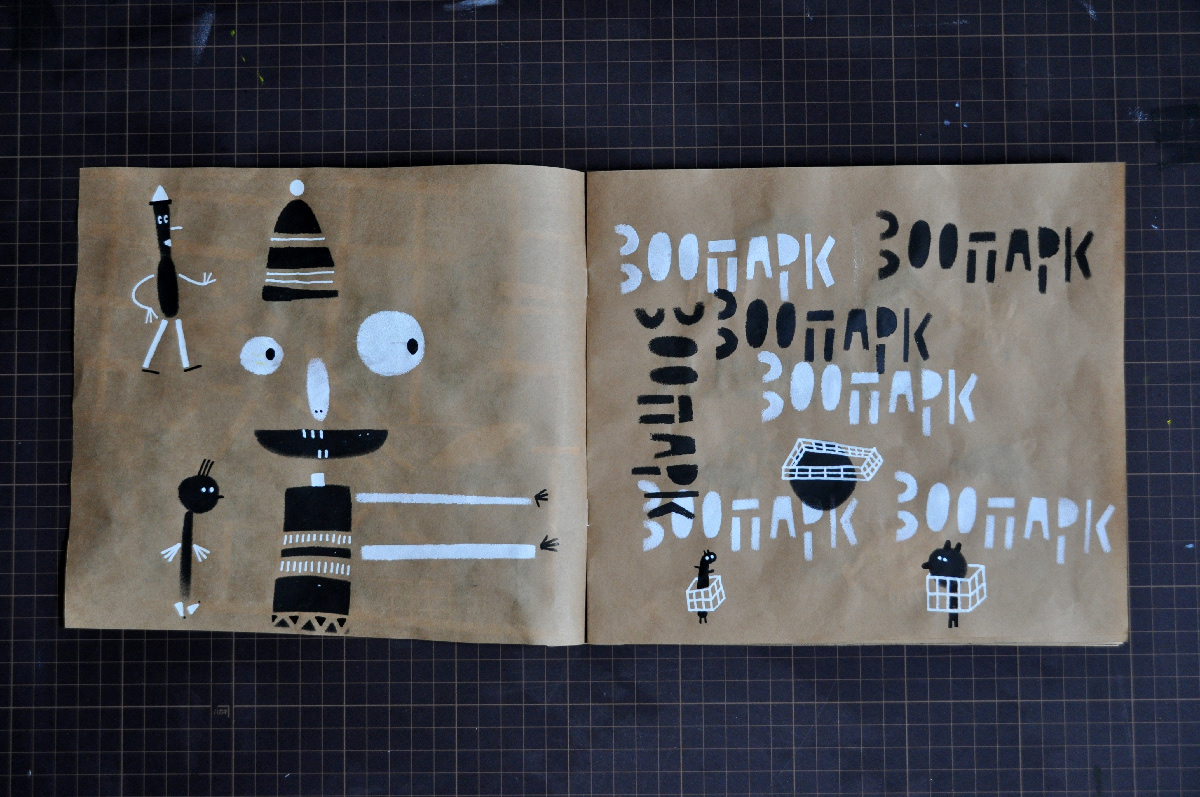 ЗООПАРК
ЗООПАРК
ЗООПАРК
ЗООПАРК
ЗООПАРК
ЗООПАРК
ЗООПАРК